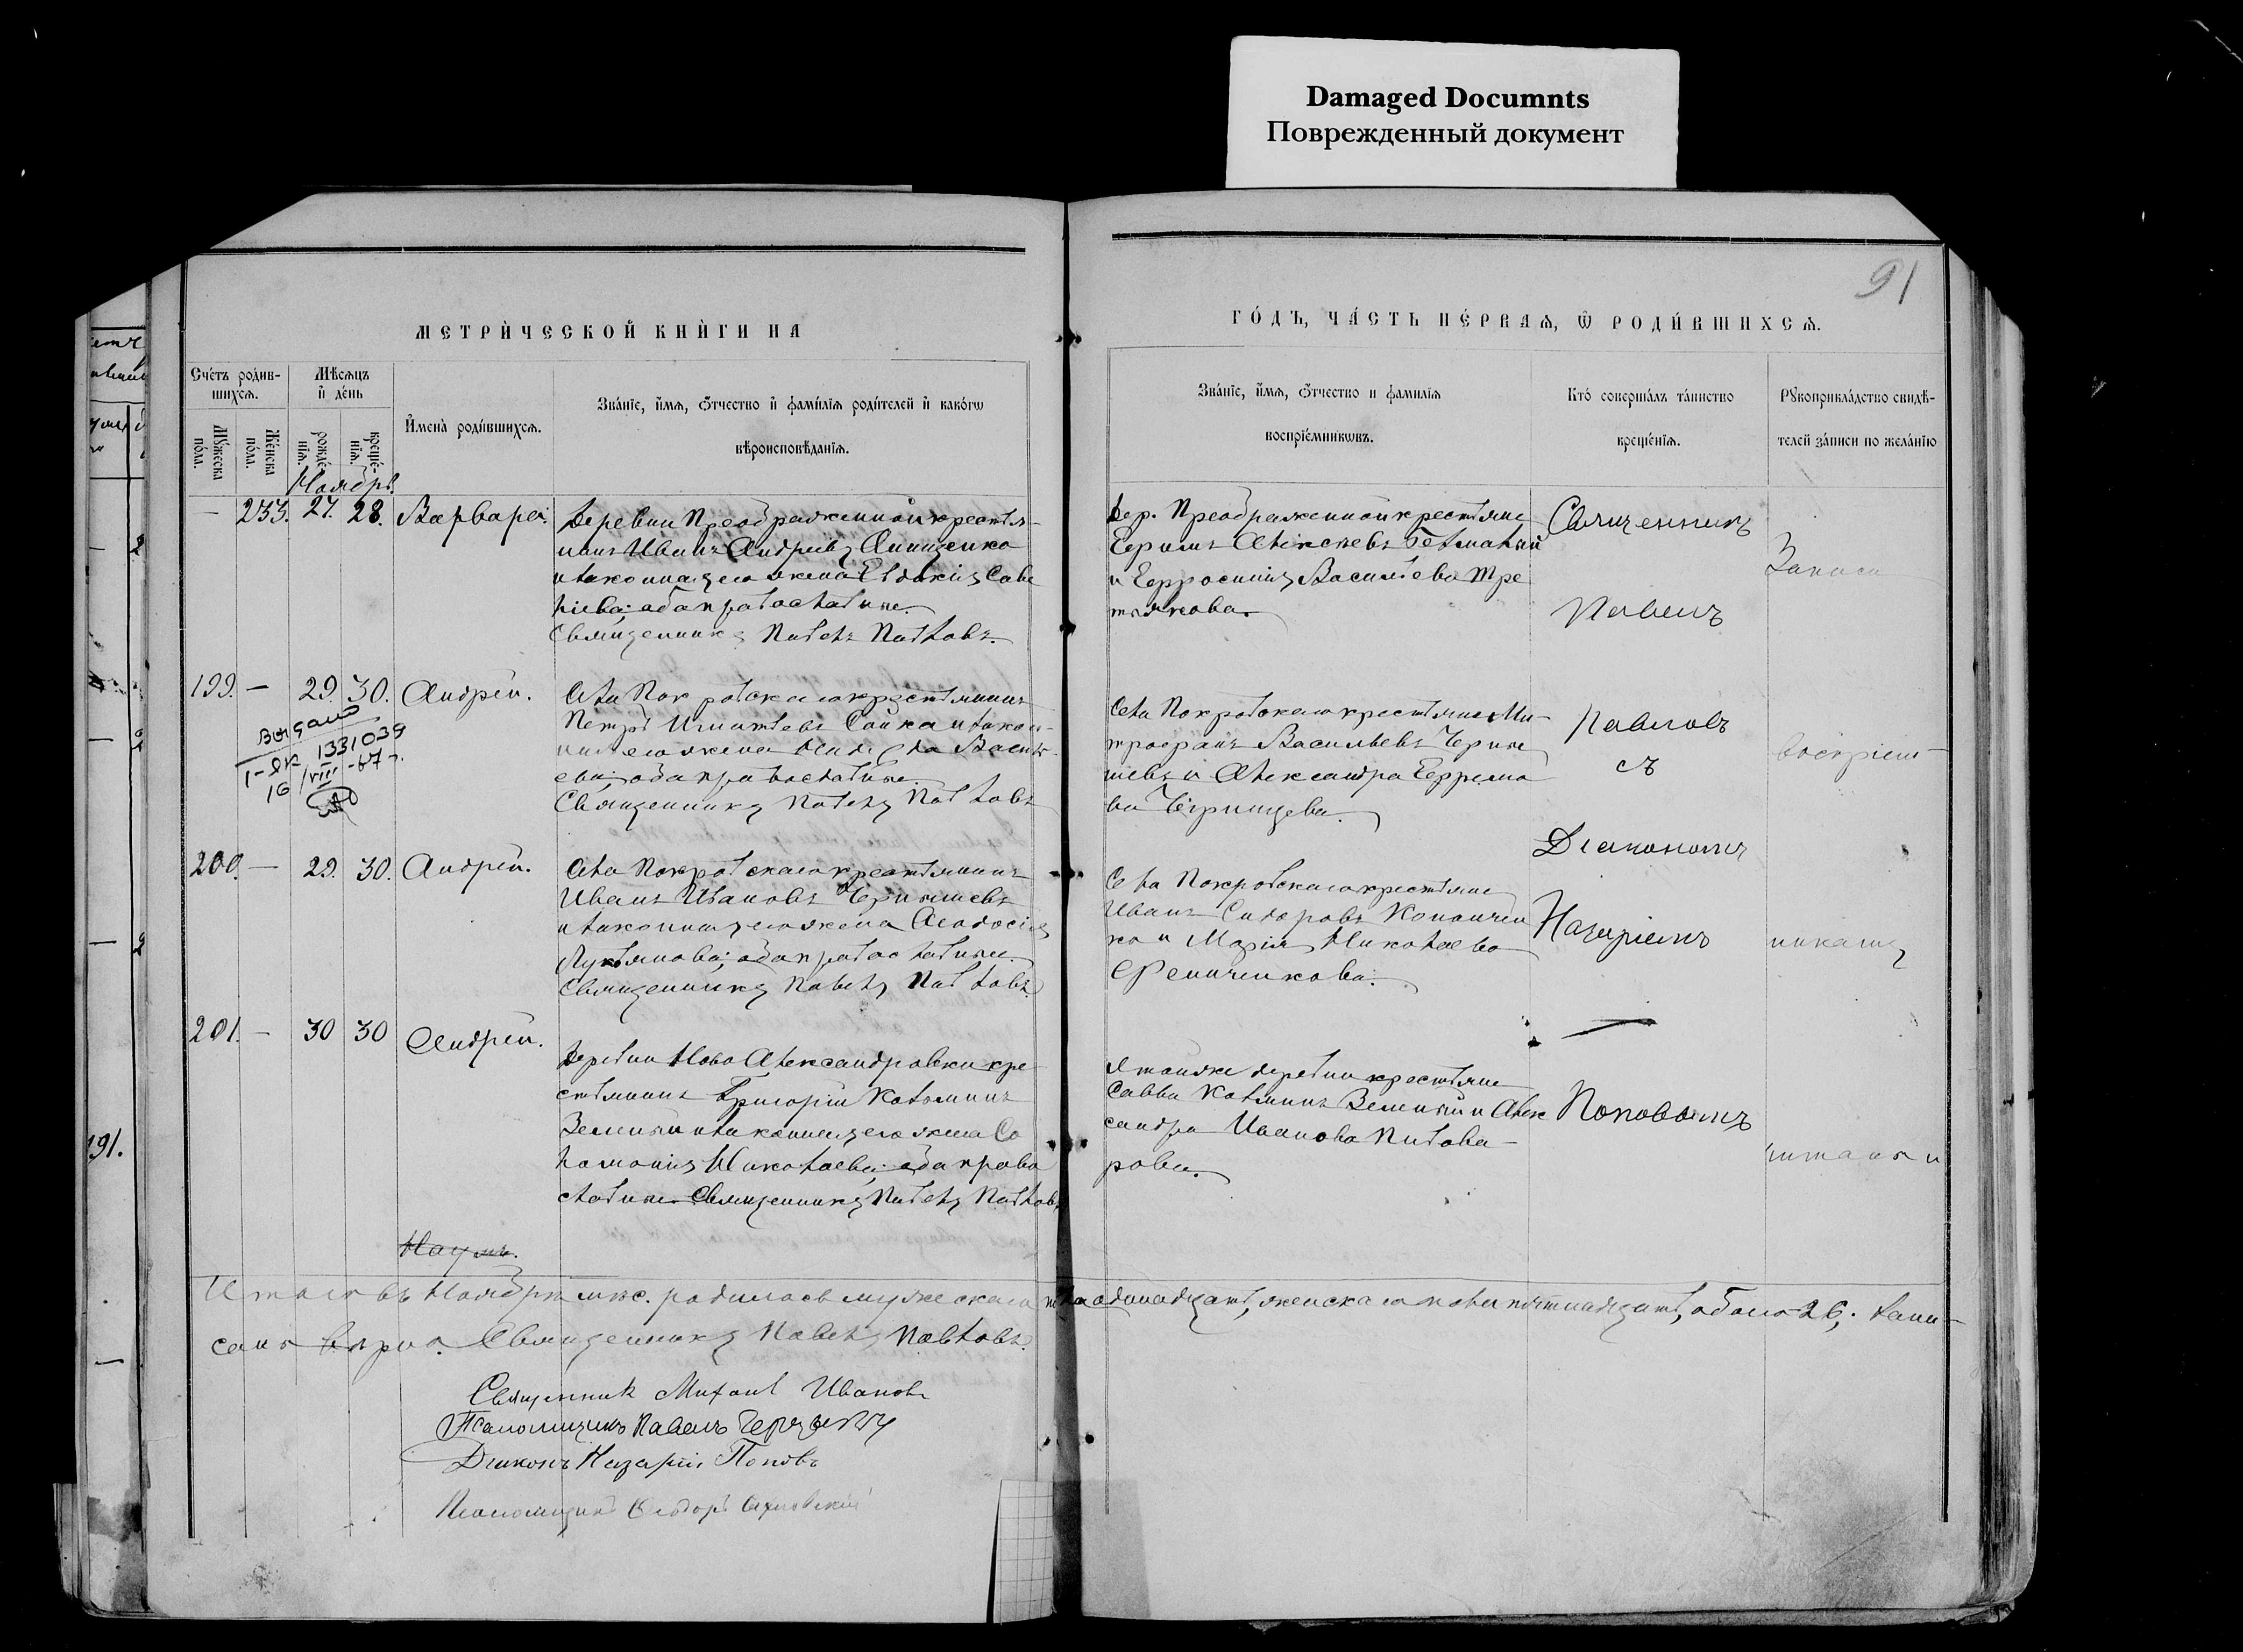 Damaged Documnts
Поврежденный документ
91
МЕТРИ́ЧЕСКОЙ КНИ́ГИ НА
ГО́ДЪ, ЧА́СТЬ ПЕ́РВАѦ, Ѿ РОДИ́ВШИХСѦ.
Сче́тъ роди́вшихсѧ.
Мꙋ́жеска по́ла.
Же́нска по́ла.
Мѣ́сѧцъ и҆ де́нь
рожде́нїѧ.
креще́нїѧ.
И҆мена̀ роди́вшихсѧ.
Зва́нїе, и҆́мѧ, ѻ҆́тчество и҆ фами́лїѧ роди́телей и҆ како́гѡ
вѣроисповѣ́данїѧ.
Зва́нїе, и҆́мѧ, ѻ҆́тчество и фами́лїѧ
воспрїе́мникѡвъ.
Кто́ соверша́лъ та́инство
креще́нїѧ.
Рꙋкоприкла́дство свидѣ́-
телей за́писи по жела́нїю
Ноябрь
— 233. 27. 28. Варвара.
Деревни Преображенной крестья-
нинъ Иванъ Андреевъ Анищенко
и законная его жена Евдокія Саве
ліева; оба православные.
Священникъ Павелъ Павловъ.
Дер. Преображенной крестьяне
Алексѣевъ
и Евфросинія Васильева Тре
тьякова.
199. — 29. 30. Андрей.
Села Покровскаго крестьянинъ
Петръ Игнатьевъ Сайка и закон-
ная его жена Василь-
ева; оба православные.
Священникъ Павелъ Павловъ
Села Покровскаго крестьяне Ми-
трофанъ Васильевъ Черны
шевъ и Александра Ефремо
ва
1-ЯК 1331039
16/VIII-67 г.
200. — 29. 30. Андрей.
Села Покровскаго крестьянинъ
Иванъ Ивановъ Чернышевъ
и законная его жена Феодосія
Лукьянова; оба православные.
Священникъ Павелъ Павловъ.
Села Покровскаго крестьяне
Иванъ Сидоровъ Кононен
ко и Марія Николаева
201. — 30 30 Андрей.
Деревни Ново Александровки кре
стьянинъ Григорій
и законная его жена Со
ломонія Николаева; оба право
славные. Священникъ Павелъ Павловъ
и тойже деревни крестьяне
Савва и Алек
сандра Иванова Пивова-
рова.
Священникъ
Павелъ
Павловъ
съ
Діакономъ
Назаріемъ
Поповымъ
Наумъ.
Итого въ Ноябрѣ мѣс. родилось мужескаго пола одинадцать, женскаго пола пятнадцать, обоего 26; Запи-
сано вѣрно. Священникъ Павелъ Павловъ.
Священник Михаил Иванов
Псаломщикъ Павелъ
Діаконъ Назарій Поповъ
Псаломщикъ Ѳеодоръ
191.